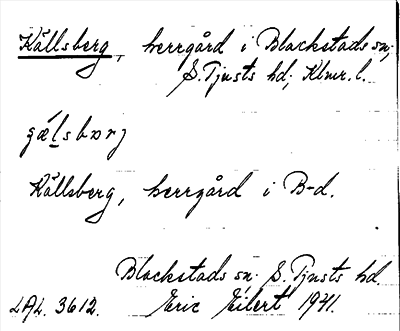 Källsberg, herrgård i Blackstads sn;
S. Tjusts hd; Klmr. l.
gǽlsbærj
Källsberg, herrgård i B-d.
Blackstads sn. S. Tjusts hd
LAL. 3612. Eric Eilert 1941.